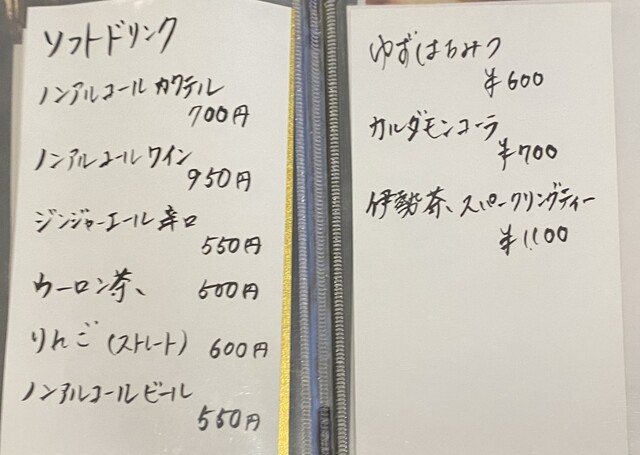 ソフトドリンク
ノンアルコール カクテル
700円
ノンアルコール ワイン
950円
ジンジャーエール 辛口
550円
ウーロン茶、 600円
りんご (ストレート) 600円
ノンアルコール ビール
550円
ゆずはちみつ
¥600
カルダモンコーラ
¥700
伊勢茶、スパークリングティー
¥1.100